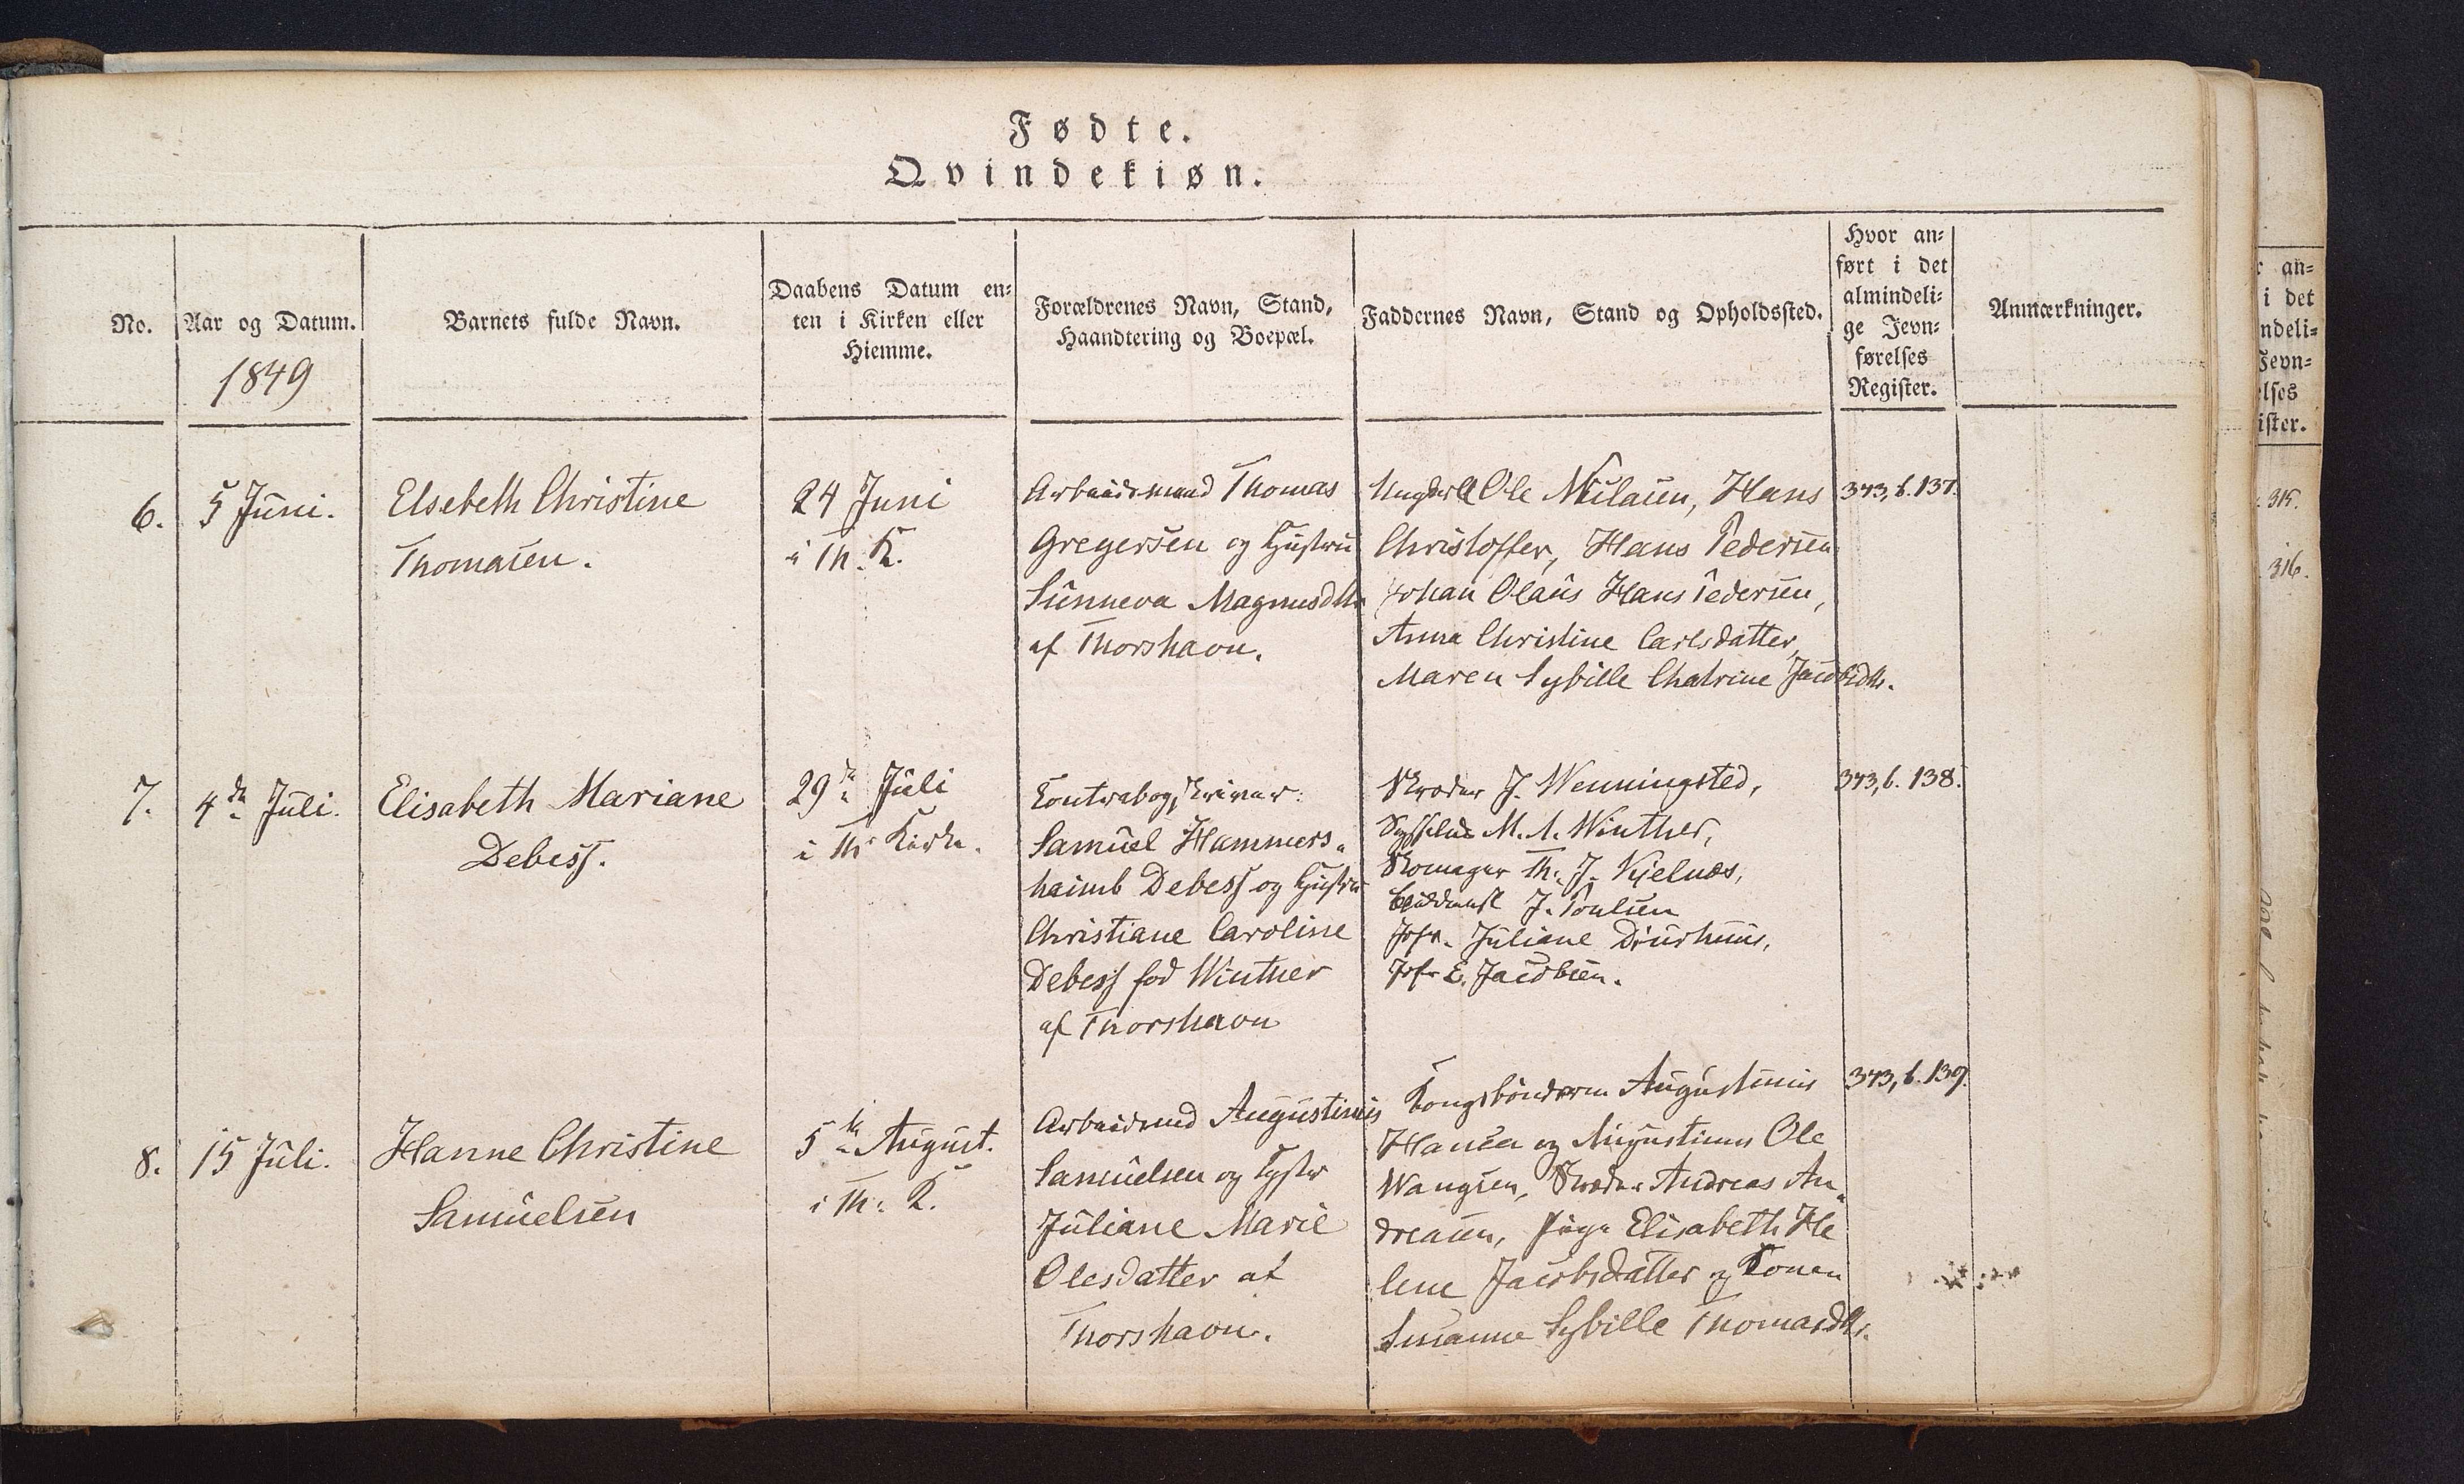 Fødte.
Qvindekiøn.
No.
Aar og Datum.
1849
Barnets fulde Navn.
Daabens Datum en-
ten i Kirken eller
Hiemme.
Forældrenes Navn, Stand,
Haandtering og Boepæl.
Faddernes Navn, Stand og Opholdssted.
Hvor an-
ført i det
almindeli-
ge Jevn-
førelses
Register.
Anmærkninger.
6.
5 Juni.
Elsebeth Christine
Thomasen.
24 Juni
i Th. K.
Arbeidsmand Thomas
Gregersen og Hustru
Sunneva Magnusdtr
af Thorshavn.
Ole Nilasen, Hans
Christoffer, Hans Pedersen
Johan Olaus Hans Pedersen,
Anna Christine Carlsdatter,
Maren Sybille Chatrine Jacobsdtr.
343, b. 137.
7.
4de Juli.
Elisabeth Mariane
Debess.
29de Juli
i Th. Kirke.
Contrabogskriver:
Samuel Hammers-
haimb Debess og Hustru
Christiane Caroline
Debess fød Winther
af Thorshavn
Skræder J. Wenningsted,
M. A. Winther,
Skomager Th. J. Kjelnæs,
J. Poulsen
Jfr. Juliane Diurhuus,
Jfr E. Jacobsen.
343, b. 138.
8.
15 Juli.
Hanne Christine
Samuelsen
5te August.
i Th. K.
Arbeidsmd Augustinus
Samuelsen og Hustr
Juliane Marie
Olesdatter af
Thorshavn.
Kongsbønderne Augustinus
Hansen og Augustinus Ole
Wangsen, Skræder Andreas An-
dreasen, Pige Elisabeth He
lene Jacobsdatter og Konen
Susanne Sybille Thomasdtr.
343, b. 139.
r an-
i det
ndeli-
Jevn-
elses
ister.
315.
316.